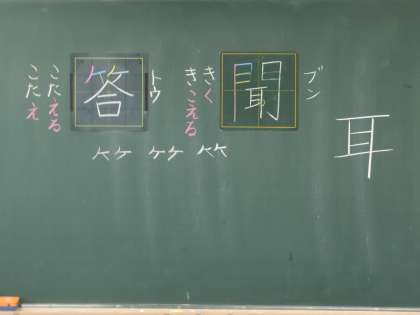 耳
ブン
聞
きく
きこえる
トウ
答
こたえる
こたえ